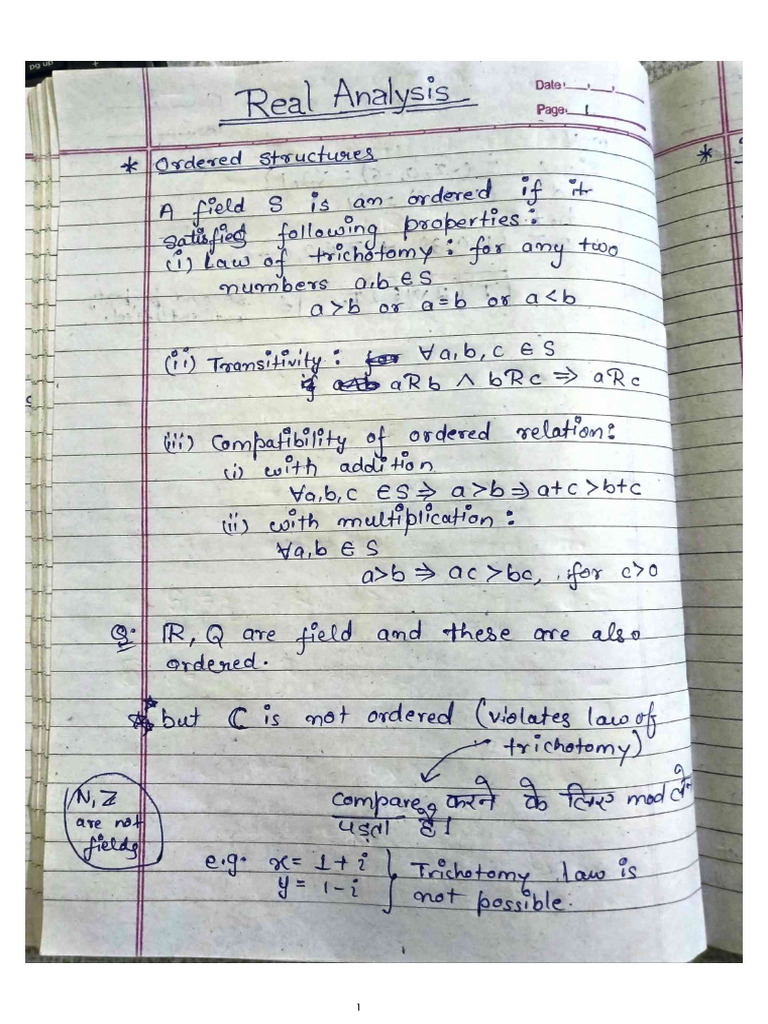 pg up
Real Analysis
Date:
Page: 1
* Ordered Structures
*
A field S is an ordered if it
satisfied following properties:
(i) Law of trichotomy: for any two
numbers a,b ∈ S
a>b or a=b or a<b
(ii) Transitivity: ∀a,b,c ∈ S
aRb ∧ bRc ⇒ aRc
(iii) Compatibility of ordered relation:
(i) with addition
∀a,b,c ∈S ⇒ a>b ⇒ a+c>b+c
(ii) with multiplication:
∀a,b ∈ S
a>b ⇒ ac>bc, for c>0
Q: ℝ, Q are field and these are also
ordered.
but ℂ is not ordered (violates law of
trichotomy)
Compare करने के लिए mod लेने
पड़ता है।
N, Z
are not
fields
e.g. x = 1+i
y = 1-i
Trichotomy law is
not possible.
1